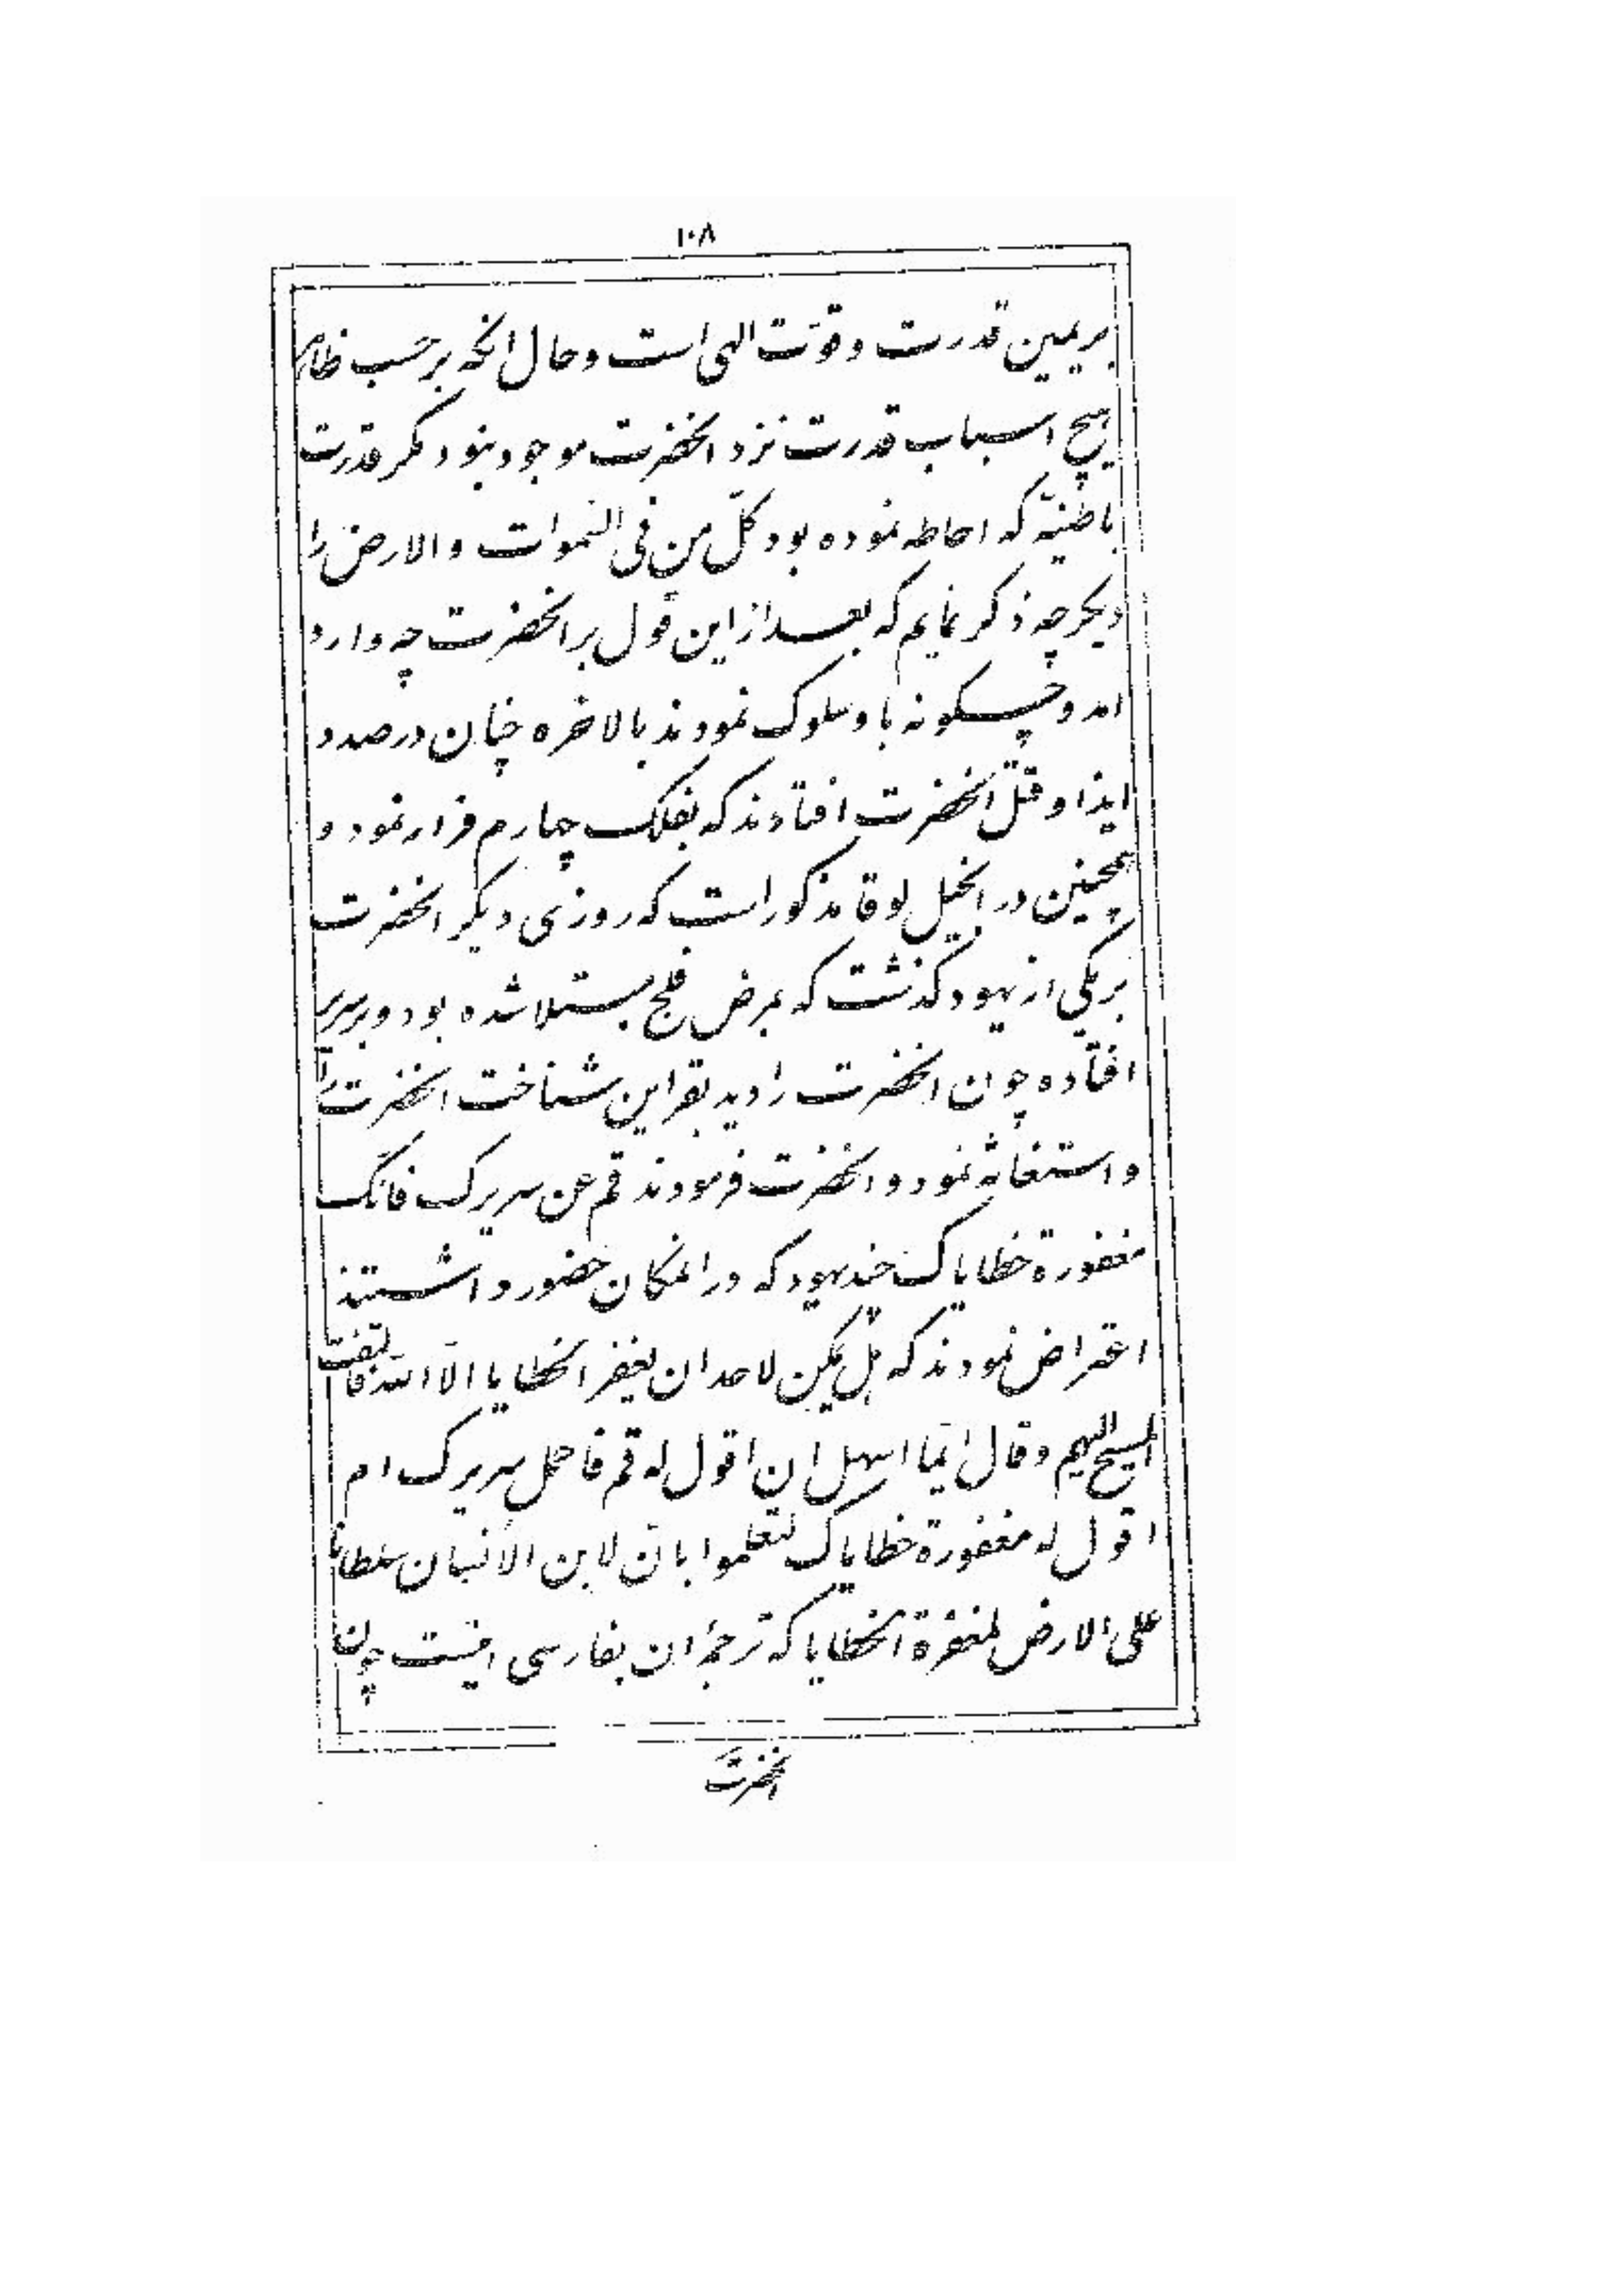 ۱۰۸
بر یمین قدرت و قوّت الهی است و حال انکه بر حسب ظاهر
هیچ اسباب قدرت نزد انحضرت موجود نبود مگر قدرت
باطنیّه که احاطه نموده بود کلّ من فی السّموات و الارض را
دیگر چه ذکر نمایم که بعد از این قول بر انحضرت چه وارد
امد و چسکونه باو سلوک نمودند بالاخره چنان در صدد
ایذا و قتل انحضرت افتادند که بفلک چهارم فرار نمود و
همچنین در انجیل لوقا مذکور است که روزی دیگر انحضرت
بر یکی از یهود گذشت که بمرض فلج مبتلا شده بود و بر سریر
افتاده چون انحضرت را دید بقراین شناخت انحضرت را
و استغاثه نمود و انحضرت فرمودند قم عن سریرک فانّک
مغفورة خطایاک چند یهود که در انمکان حضور داشتند
اعتراض نمودند که هل یمکن لاحد ان یغفر الخطایا الّا اللّه فالتفت
المسیح الیهم و قال ایّما اسهل ان اقول له قم فاحمل سریرک ام
اقول له مغفورة خطایاک لتعلموا بانّ لابن الانسان سلطانا
علی الارض لمغفرة الخطایا که ترجمهٔ ان بفارسی اینست چون
انحضرت